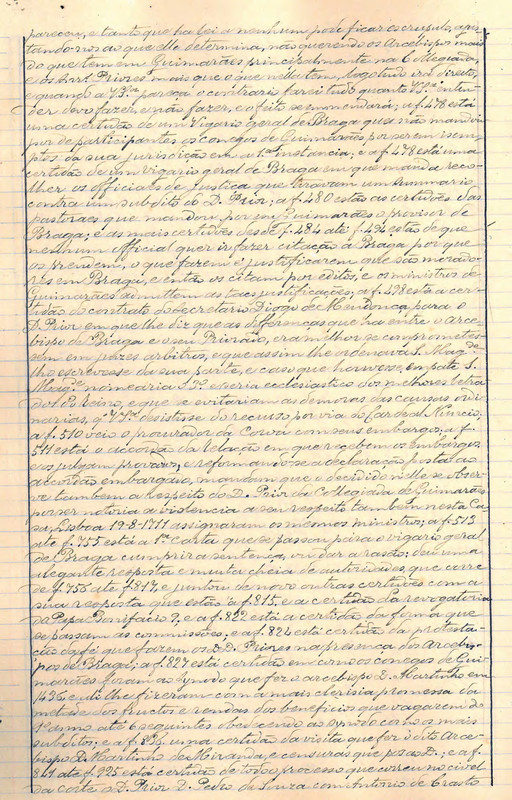 pareceu, e tanto que ha lei a nenhum pode ficar escrupulo, ajus-
tando-nos ao que elle determina, nas querendo os Arcebispos mais
do que tem em Guimarães principalmente na Collegiada,
e os Snrs Priores mais que o que nella tem, logo tudo irá direito,
e quando a VSria pareça o contrario farei tudo quanto VSria enten-
der devo fazer, e não fazer, e o feito se emendará; a f. 478 está
uma certidão de um Vigario geral de Braga que não manda
por de participantes os conegos de Guimarães por serem isem-
ptos da sua jurisdição em 1ª instancia; e a f. 478 está uma
certidão de um vigario geral de Braga em que manda reco-
lher os officiaes de Justiça que tiravam um summario
contra um subdito do D. Prior; a f. 480 estão as certidões das
pastoraes que mandou por em Guimarães o provisor de
Braga; e as mais certidões desde f. 484 até f. 494 estão de que
nenhum official quer ir fazer citação a Braga por que
os prendem, o que fazem é justificarem que são morado-
res em Braga, e então os citam por editos, e os ministros de
Guimarães admittem as taes justificações; a f. 498 está a cer-
tidão do contrato do secretario Diogo de Mendonça para o
D. Prior em que lhe diz que as differenças que ha entre o Arce-
bispo de Braga e o seu Priorado, era melhor se comprometes-
sem em juizes arbitros, e que assim lhe ordenava S. Magde
lho escrevesse da sua parte, e caso que houvesse empate S.
Magde nomearia 3º e seria ecclesiastico dos melhores letra-
dos do Reino, e que se evitariam as demoras das causas ordi-
narias, q VSria desistisse do recurso por via do Cardeal Nuncio;
a f. 510 veio o procurador da Coroa com seus embargos; a f.
511 está o acordão da Relação em que recebem os embargos,
e os julgam provados, e reformando-se a declaração posta ao
accordão embargado, mandam que o decidido nelle se obser-
ve tambem a respeito do D. Prior da Collegiada de Guimarães
por ser notoria a violencia a seu respeito tambem nesta Ca-
sa, Lisboa 19-8-1711 assignaram os mesmos ministros; a f. 513
até f. 755 está a 1ª Carta que se passou para o vigario geral
de Braga cumprir a sentença, ou dar a rasão; deu uma
elegante resposta e muito cheia de autoridades, que corre
de f. 755 até f. 814, e juntou de novo outras certidões com a
sua resposta que estão a f. 815, e a certidão da revogatoria
do Papa Bonifacio 9; e a f. 822 está a certidão da forma que
se passam as commissões; e a f. 824 está certidão da protesta-
ção da fé que fazem os D.D. Priores na presença dos Arcebis-
pos de Braga; a f. 827 está certidão em como os conegos de Gui-
marães foram ao synodo que fez o arcebispo D. Martinho em
1436, e ali lhe fizeram com a mais clerisia promessa da
metade dos fructos e rendas dos beneficios que vagarem do
1º anno até 6 seguintes obedecendo ao synodo como os mais
subditos; e a f. 836 uma certidão da visita que fez o dito Arce-
bispo D. Martinho de Miranda, e censuras que pos ao D.; e a f.
841 até f. 925 está certidão de todo o processo que correu no civel
da Corte o D. Prior D. Pedro de Souza com Antonio de Crasto